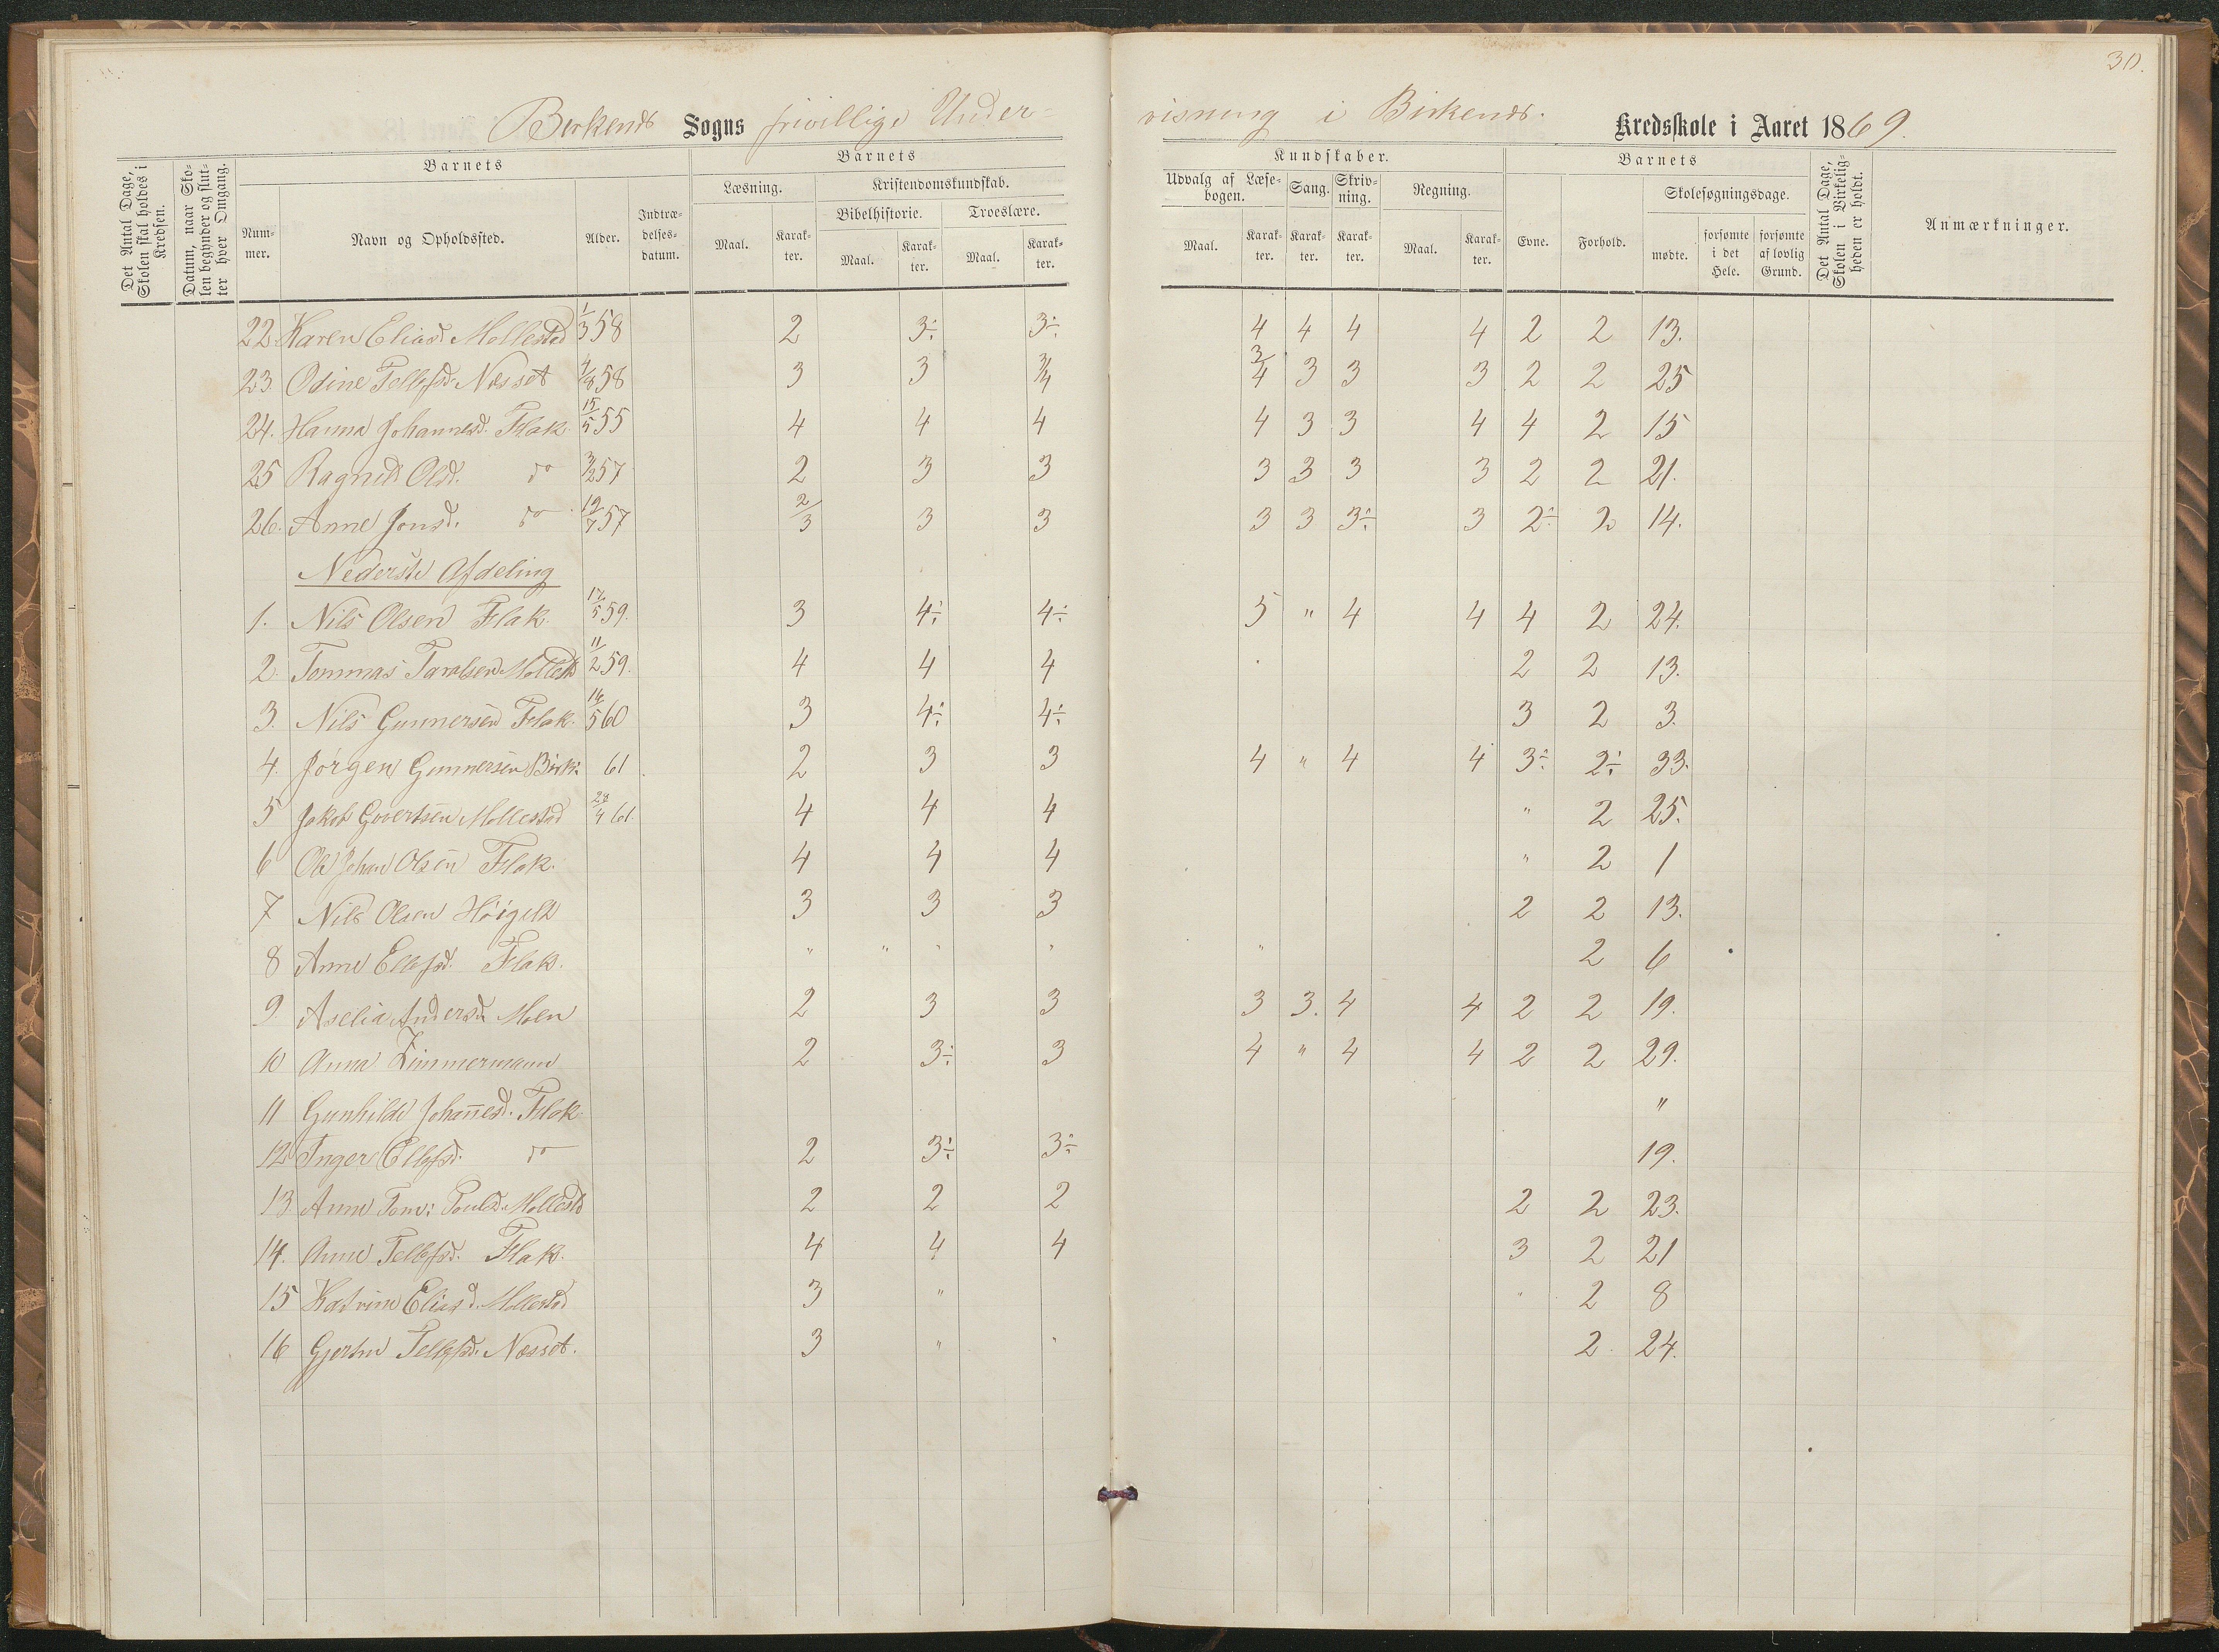 30.
Birkends Sogns frivillige Under- visning i Birkends. Kredsskole i Aaret 1869.
Det Antal Dage, Skolen skal holdes i Kredsen.
Datum, naar Skolen begynder og slutter hver Omgang.
Barnets
Nummer.
Navn og Opholdssted.
Alder.
Indtrædelsesdatum.
Barnets
Læsning.
Maal. Karakter.
Kristendomskundskab.
Bibelhistorie. Troeslære.
Maal. Karakter. Maal. Karakter.
Kundskaber.
Udvalg af Læsebogen. Sang. Skrivning. Regning.
Maal. Karakter. Karakter. Karakter. Maal. Karakter.
Barnets
Evne. Forhold.
Skolesøgningsdage.
mødte. forsømte i det Hele. forsømte af lovlig Grund.
Det Antal Dage, Skolen i Virkeligheden er holdt.
Anmærkninger.
22 Karen Eliasd. Mollestad 1/3 58 2 3÷ 3÷ 4 4 4 4 2 2 13.
23 Odine Tellefsd. Nesset 4/8 58 3 3 3/4 3/4 3 3 3 2 2 25
24. Hanna Johannesd. Flak 15/5 55 4 4 4 4 3 3 4 4 2 15
25 Ragnild Olsd. do 3/2 57 2 3 3 3 3 3 3 2 2 21.
26. Anne Jonsd. do 12/7 57 2/3 3 3 3 3 3÷ 3 2÷ 2 14.
Nederste Afdeling
1. Nils Olsen Flak. 17/5 59. 3 4÷ 4÷ 5 " 4 4 4 2 24.
2. Tommas Taralsen Mollestd 11/2 59. 4 4 4 2 2 13.
3. Nils Gunnersen Flak. 16/5 60 3 4÷ 4÷ 3 2 3.
4. Jörgen Gunnersen Birk: 61 2 3 3 4 " 4 4 3÷ 2÷ 33.
5 Jakob Govertsen Mollestad 28/4 61. 4 4 4 " 2 25.
6 Ole Johan Olsen Flak. 4 4 4 " 2 1
7 Nils Olsen Höigilt 3 3 3 2 2 13.
8 Anne Ellefsd. Flak. " " " " " 2 6
9 Aselia Andersd. Moen 2 3 3 3 3. 4 4 2 2 19.
10 Anna Zimmermann 2 3÷ 3 4 " 4 4 2 2 29.
11 Gunhilde Johannesd. Flak "
12 Inger Ellefsd. do 2 3÷ 3÷ 19.
13 Anne Tom: Pouls. Mollestd 2 2 2 2 2 23.
14. Anne Tellefsd. Flak. 4 4 4 3 2 21
15 Katrine Eliasd. Mollestad 3 " " 2 8
16 Gjertine Tellefsd. Nesset. 3 " " 2 24.